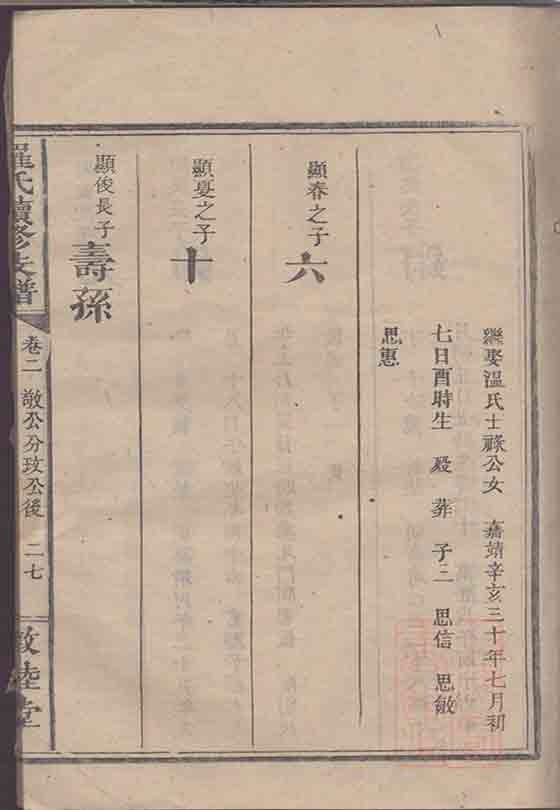 繼娶溫氏士祿公女 嘉靖辛亥三十年七月初
七日酉時生 歿 葬 子三 思信 思敏
思惠
顯春之子
六
顯夏之子
十
顯俊長子
壽孫
羅氏續修支譜
卷二 敬公分玫公後 二七
敦睦堂